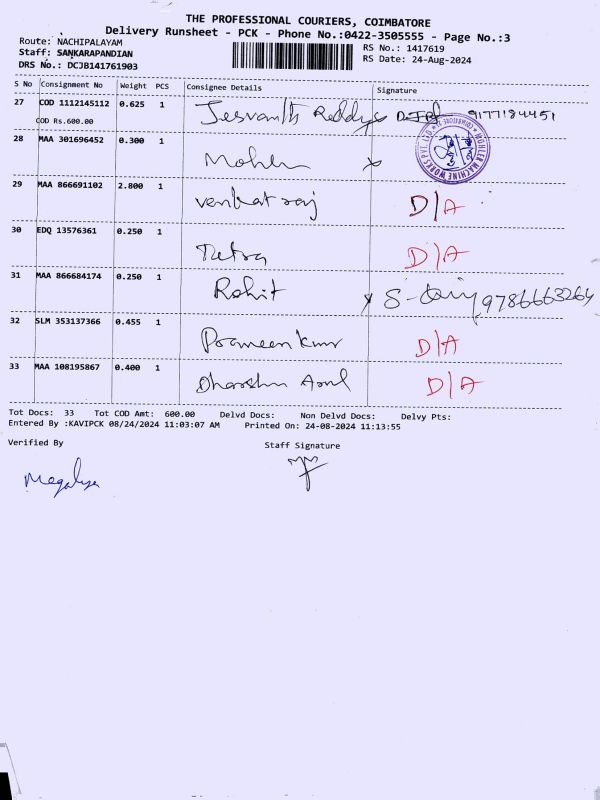 THE PROFESSIONAL COURIERS, COIMBATORE
Delivery Runsheet - PCK - Phone No.:0422-3505555 - Page No.:3
Route: NACHIPALAYAM
RS No.: 1417619
Staff: SANKARAPANDIAN
RS Date: 24-Aug-2024
DRS No.: DCJB141761903
S No Consignment No Weight PCS Consignee Details Signature
27 COD 1112145112 0.625 1 Jesvanth Reddy 9177184451
COD Rs.600.00
28 MAA 301696452 0.300 1 Mohler x
MOHLER MACHINE WORKS PVT. LTD
29 MAA 866691102 2.800 1 Venkat raj D/A
30 EDQ 13576361 0.250 1 Tetra D/A
31 MAA 866684174 0.250 1 Rohit x 9786663264
32 SLM 353137366 0.455 1 Praveen kumr D/A
33 MAA 108195867 0.400 1 D/A
Tot Docs: 33 Tot COD Amt: 600.00 Delvd Docs: Non Delvd Docs: Delvy Pts:
Entered By :KAVIPCK 08/24/2024 11:03:07 AM Printed On: 24-08-2024 11:13:55
Verified By Staff Signature